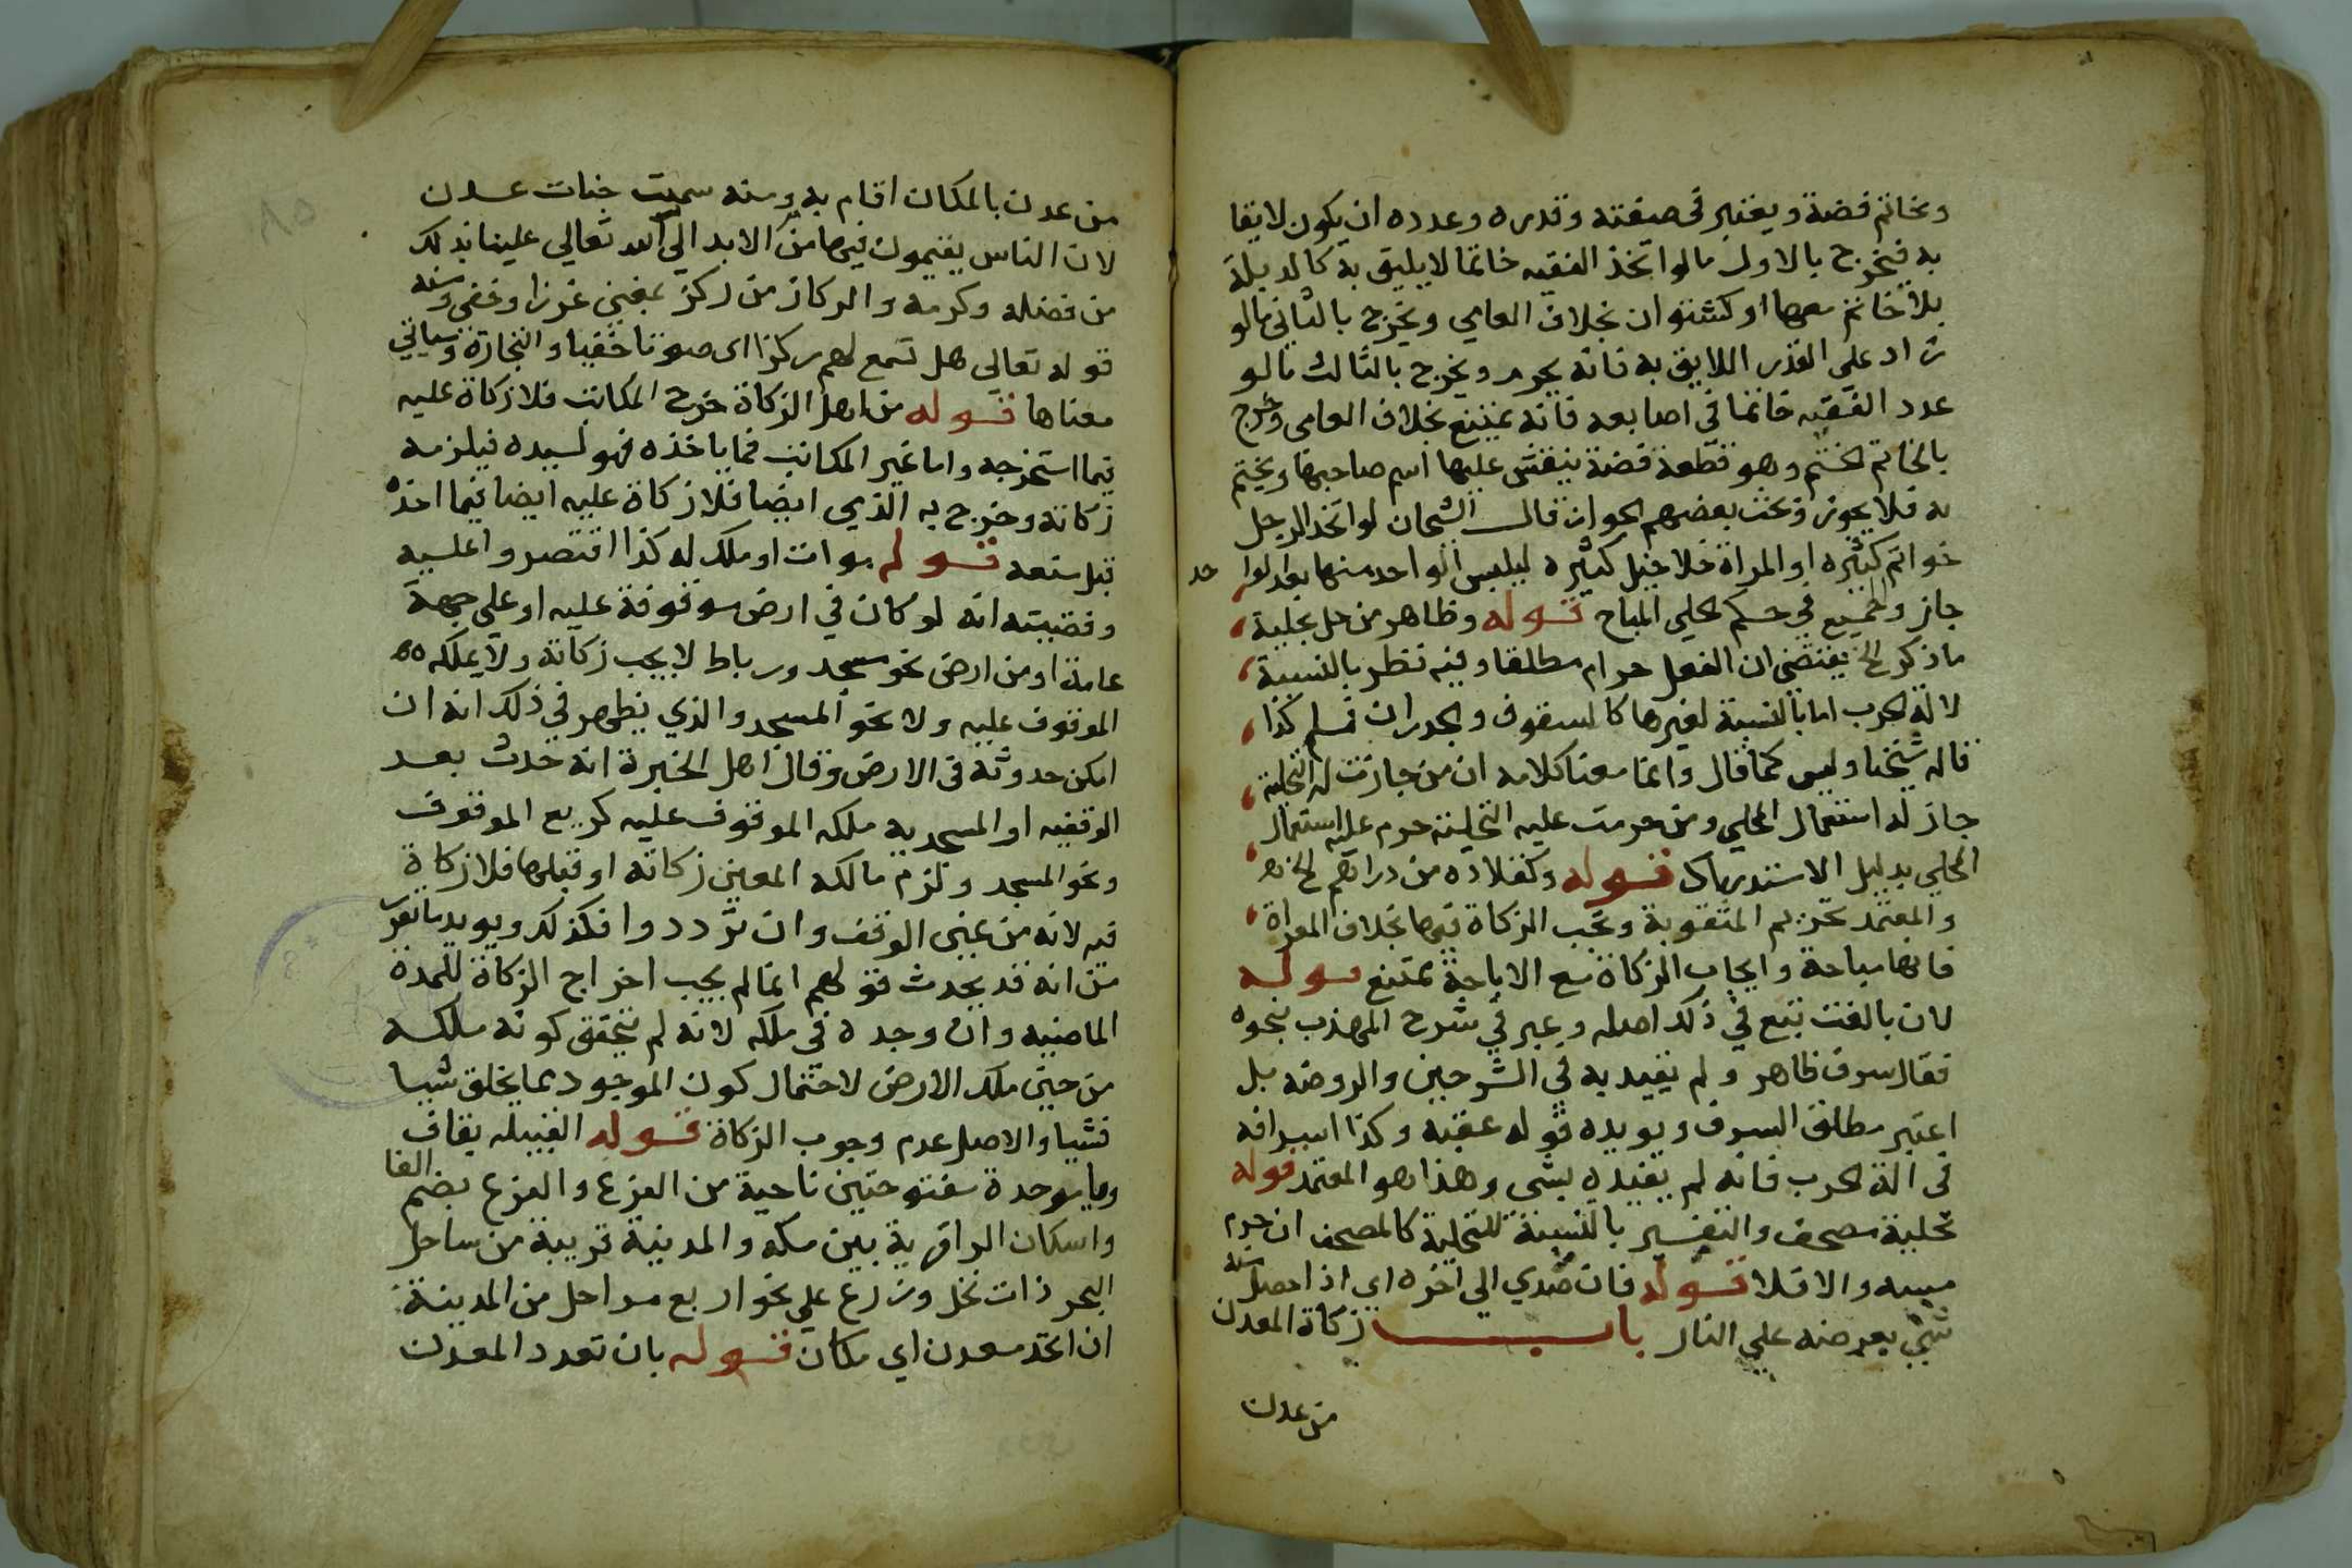 وبخاتم فضة ويعتبر في صفته وقدره وعدده ان يكون لايقا
به فيخرج بالاول ما لو اتخذ الفقيه خاتما لا يليق به كالدبلة
بلا خاتم معها او كشتوان بخلاف العامي ويخرج بالثاني ما لو
زاد على القدر اللايق به فانه يحرم ويخرج بالثالث ما لو
عدد الفقيه خاتما في اصابعه فانه يمتنع بخلاف العامي وخرج
بالخاتم الختم وهو قطعة فضة ينقش عليها اسم صاحبها ويختم
به فلا يجوز وبحث بعضهم الجواز قال الشيخان لو اتخذ الرجل
خواتم كثيره او المراة خلاخيل كثيره ليلبس الواحد منها بعد الواحد
جاز والجميع في حكم الحلي المباح قوله وظاهر من حل تحلية
ما ذكر الخ يقتضي ان الفعل حرام مطلقا وفيه نظر بالنسبة
لالة الحرب اما بالنسبة لغيرها كالسقوف والجدران فمسلم كذا
قاله شيخنا وليس كما قال وانما معنا كلامه ان من جازت له التحلية
جاز له استعمال المحلي ومن حرمت عليه التحلية حرم عليه استعمال
المحلي بدليل الاستدراك قوله وكقلاده من دراهم الخ
والمعتمد تحريم المثقوبة وتجب الزكاة فيها بخلاف المعراة
فانها مباحة وايجاب الزكاة مع الاباحة ممتنع قوله
لان بالغت تبع في ذلك اصله وعبر في شرح المهذب بنحوه
فقال سرف ظاهر ولم يقيد به في الشرحين والروضه بل
اعتبر مطلق السرف ويويده قوله عقبه وكذا اسرافه
في الة الحرب فانه لم يقيده بشي وهذا هو المعتمد قوله
تحلية مصحف والتفسير بالنسبة للتحلية كالمصحف ان حرم
مسه والا فلا قوله فان صدي الى اخره اي اذا حصل منه
شي بعرضه علي النار باب زكاة المعدن
من عدن
من عدن بالمكان اقام به ومنه سميت جنات عدن
لان الناس يقيمون فيها من الابد الي الله تعالي علينا بذلك
من فضله وكرمه والركاز من ركز بمعني غرز او خفي ومنه
قوله تعالى هل تسمع لهم ركزا اى صوتا خفيا والتجارة وسياتي
معناها قوله من اهل الزكاة خرج المكاتب فلا زكاة عليه
فيما استخرجه واما غير المكاتب فما ياخذه فهو لسيده فيلزمه
زكاته وخرج به الذمي ايضا فلا زكاة عليه ايضا فيما اخذه
قبل منعه قوله موات او ملك له كذا اقتصروا عليه
وقضيته انه لو كان في ارض موقوفة عليه او على جهة
عامة او من ارض نحو مسجد ورباط لا يجب زكاته ولا يملكه
الموقوف عليه ولا نحو المسجد والذي يظهر في ذلك انه ان
امكن حدوثه في الارض وقال اهل الخبرة انه حدث بعد
الوقفيه او المسجديه ملكه الموقوف عليه كريع الموقوف
ونحو المسجد ولزم مالكه المعين زكاته او قبلها فلا زكاة
فيه لانه من عين الوقف وان ترددوا فكذلك ويويد ما تقرر
من انه قد يحدث قولهم انما لم يجب اخراج الزكاة للمدة
الماضيه وان وجده في ملكه لانه لم يتحقق كونه ملكه
من حين ملك الارض لاحتمال كون الموجود مما يخلق شيا
فشيا والاصل عدم وجوب الزكاة قوله القبيله بقاف
وبا موحدة مفتوحتين ناحية من الفرع والفرع بضم الفا
واسكان الرا قرية بين مكه والمدينة قريبة من ساحل
البحر ذات نخل وزرع علي نحو اربع مراحل من المدينة
ان اتحد معدن اي مكان قوله بان تعدد المعدن